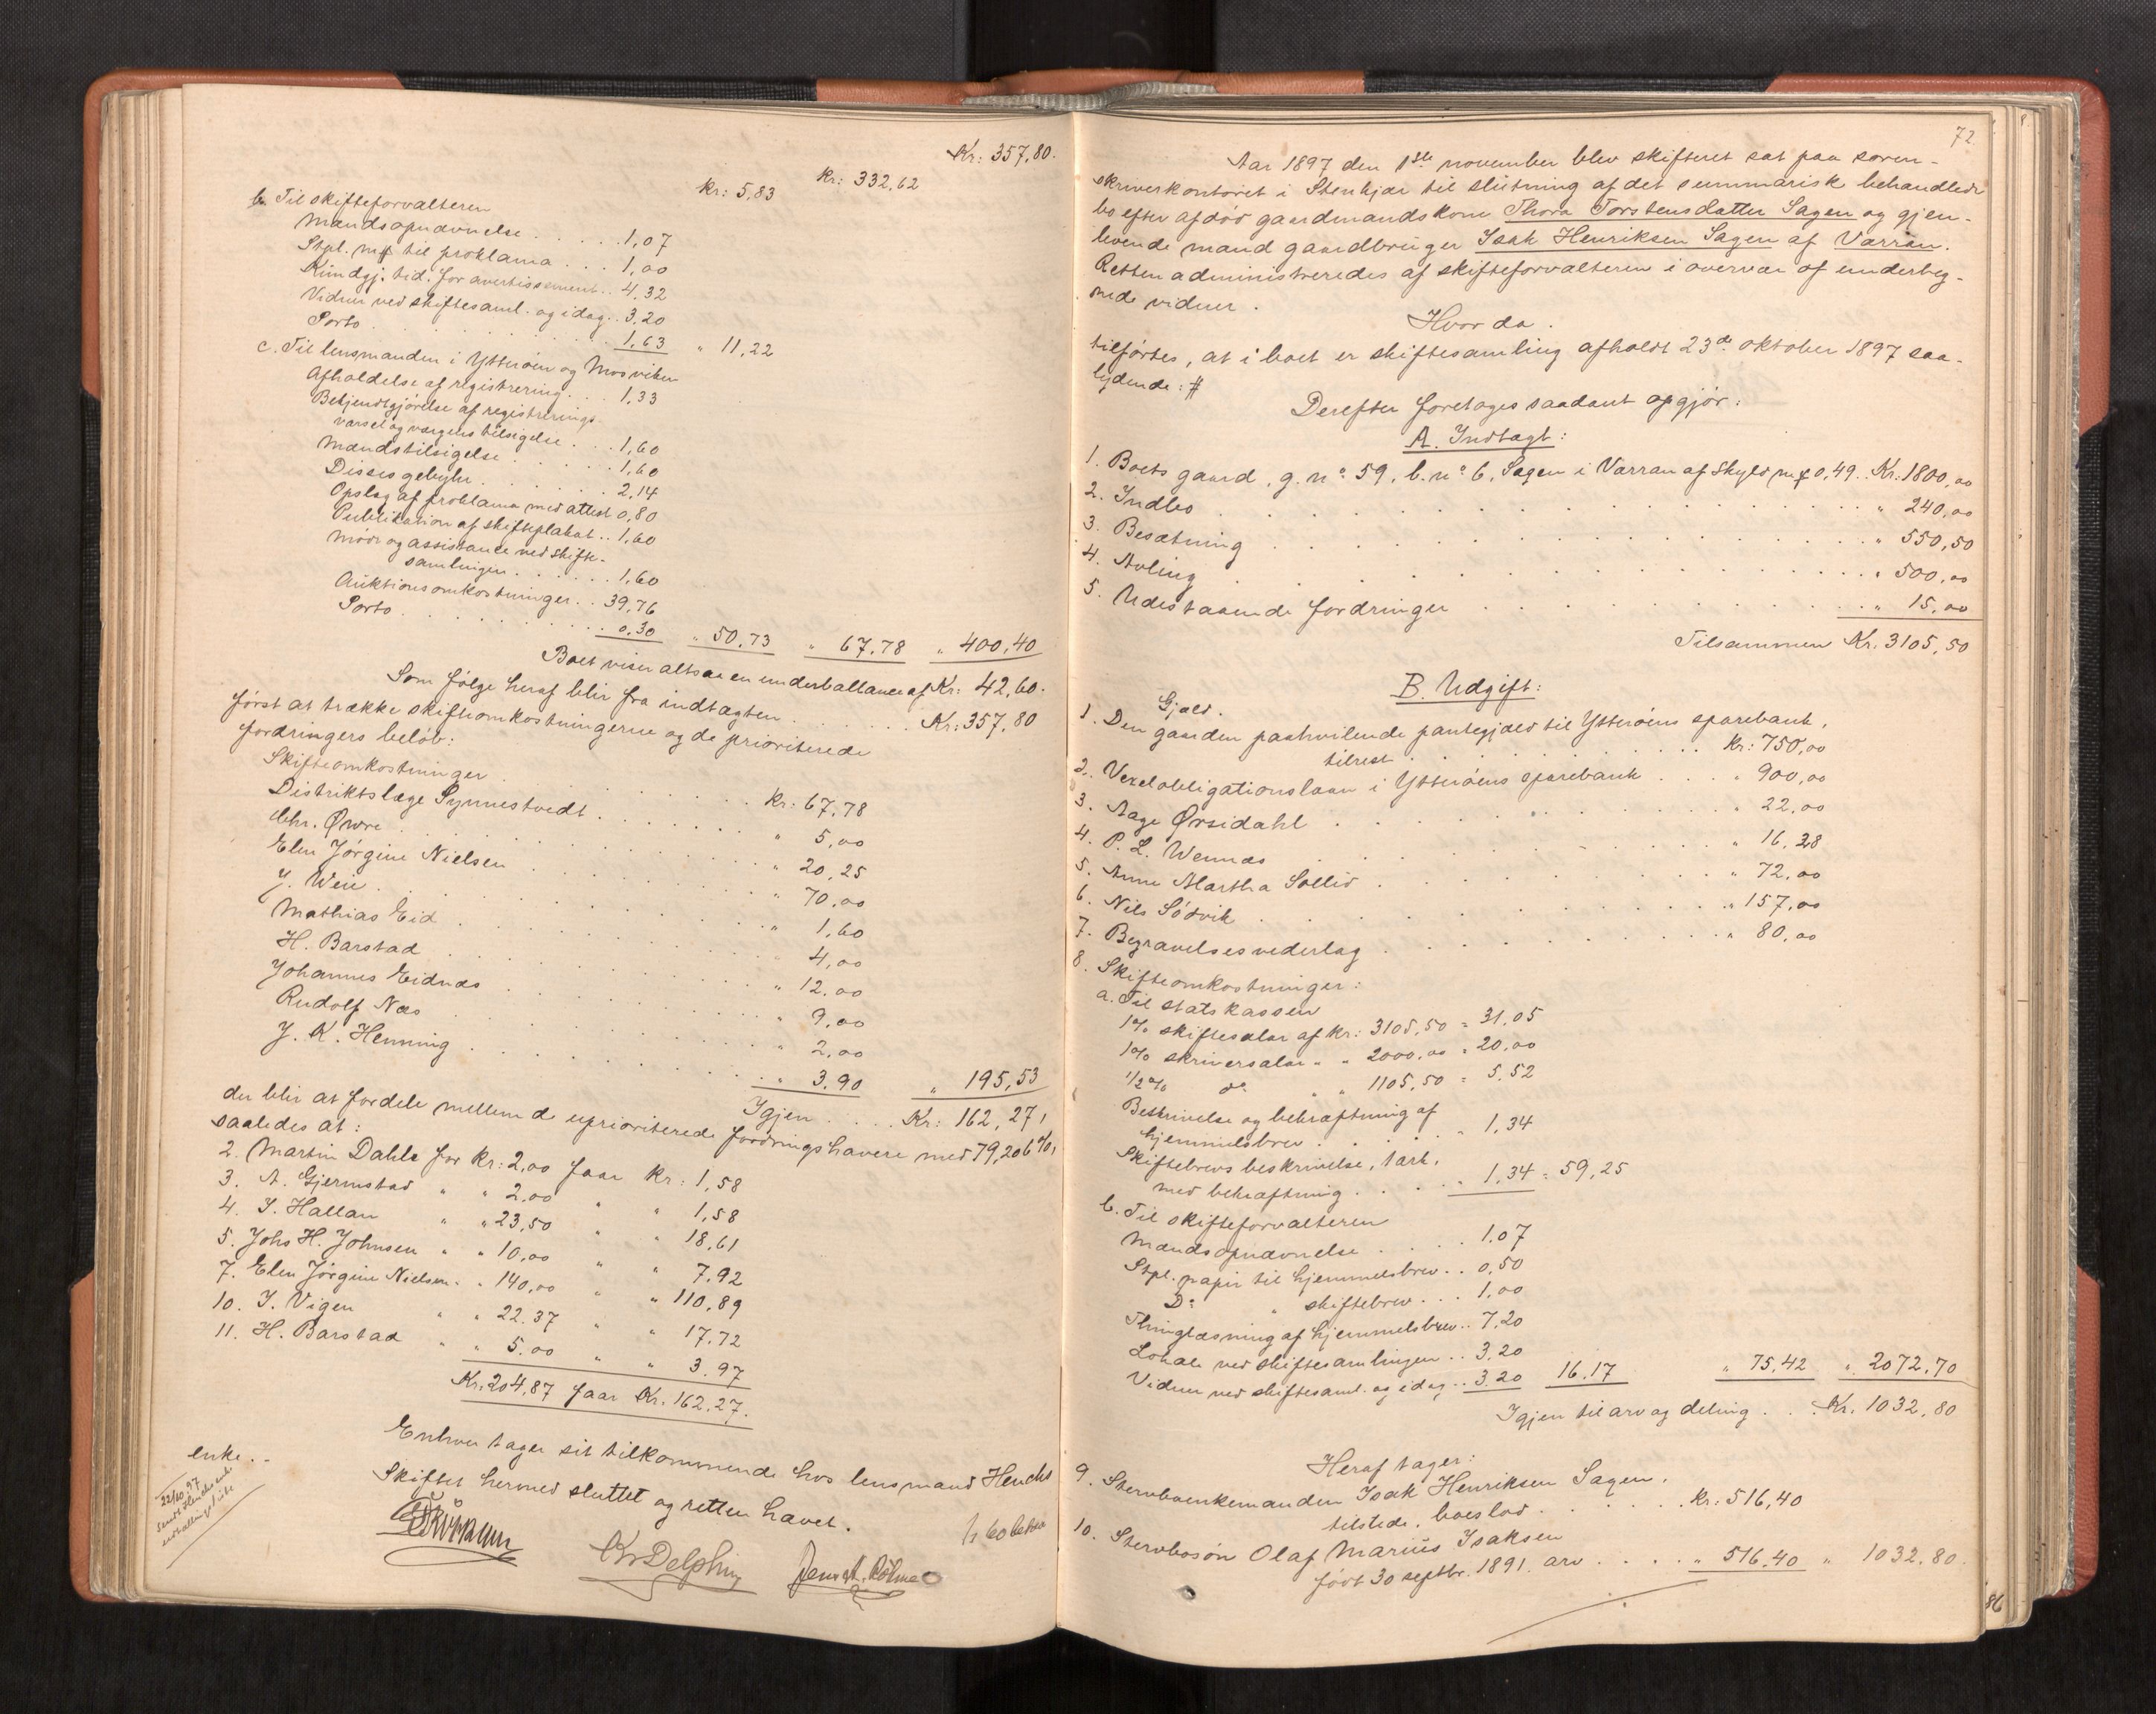 Kr: 357,80.
kr: 5,83 kr: 332,62
b. Til skifteforvalteren
Mændsopnævnelse . . . . . 1,07
Stpl. m/p til proklama . . . 1,00
Kundgj. tid. for avertissement . . 4,32
Vidner ved skiftesaml. og idag . . 3,20
Porto . . . . . . . . . . 1,63 " 11,22
c. Til lensmanden i Ytterøen og Mosviken
Afholdelse af registrering . . . 1,33
Bekjendtgjørelse af registrerings-
varsel og værgens tilsigelse . . . 1,60
Mændstilsigelse . . . . . . 1,60
Disses gebyhr . . . . . . . 2,14
Opslag af proklama med attest 0,80
Publikation af skifteplakat . . 1,60
Møde og assistance ved skifte-
samlingen . . . . . . 1,60
Auktionsomkostninger . . 39,76
Porto . . . . . . . . . . 0,30 " 50,73 " 67,78 " 400,40
Boet viser altsaa en underballance af Kr: 42,60.
Som følge heraf blir fra indtægten . . . . . . Kr: 357,80
først at trække skifteomkostningerne og de prioriterede
fordringers beløb:
Skifteomkostninger . . . . . . . . kr: 67,78
Distriktslæge Synnestvedt . . . . . . . " 5,00
Chr. Øwre . . . . . . . . . . " 20,25
Elen Jørgine Nielsen . . . . . . . " 70,00
J. Weie . . . . . . . . . . " 1,60
Mathias Eid . . . . . . . . . " 4,00
H. Barstad . . . . . . . . . " 12,00
Johannes Eidnæs . . . . . . . . " 9,00
Rudolf Næs . . . . . . . . . " 2,00
J. K. Henning . . . . . . . . . " 3,90 " 195,53
Igjen . . . . Kr: 162,27,
der blir at fordele mellem de uprioriterede fordringshavere med 79,206 %,
saaledes at:
2. Martin Dahle for kr: 2,00 faar kr: 1,58
3. A. Gjermstad " " 2,00 " " 1,58
4. I. Hallan " " 23,50 " " 18,61
5. Johs H. Johnsen " " 10,00 " " 7,92
7. Elen Jørgine Nielsen " " 140,00 " " 110,89
10. I. Vigen " " 22.37 " " 17.72
11. H. Barstad " " 5.00 " " 3.97
Kr. 204,87 faar Kr. 162.27.
Enhver tager sit tilkommende hos lensmand Henchs
Skiftet hermed sluttet og retten hævet.
enke . .
22/10 97
Kr Delphin Jens A. Rølme
72
Aar 1897 den 1ste november blev skifteret sat paa soren-
skriverkontoret i Stenkjær til slutning af det summarisk behandlede
bo efter afdød gaardmandskone Thora Torstensdatter Sagen og gjen-
levende mand gaardbruger Isak Henriksen Sagen af Værran.
Retten administreredes af skifteforvalteren i overvær af underteg-
nede vidner.
Hvor da.
tilførtes, at i boet er skiftesamling afholdt 23de oktober 1897 saa-
lydende: #
Derefter foretages saadant opgjør:
A. Indtægt:
1. Boets gaard, g. no 59, b. no 6, Sagen i Værran af Skyld m# 0,49 . . Kr: 1800,00
2. Indbo . . . . . . . . . . . " 240,00
3. Besætning . . . . . . . . . . " 550,50
4. Avling . . . . . . . . . . . " 500,00
5. Udestaaende fordringer . . . . . . . " 15,00
Tilsammen Kr. 3105,50
B. Udgift:
Gjæld.
1. Den gaarden paahvilende pantegjæld til Ytterøens sparebank,
tilrest . . . . . . . . . kr: 750,00
2. Vexelobligationslaan i Ytterøens sparebank . . . " 900,00
3. Aage Ørsidahl . . . . . . . . . " 22,00
4. P. L. Wennæs . . . . . . . . . " 16,28
5. Anne Martha Sollid . . . . . . . . " 72,00
6. Nils Sødvik . . . . . . . . . " 157,00
7. Begravelsesvederlag . . . . . . . . " 80,00
8. Skifteomkostninger:
a. Til statskassen
1% skiftesalar af kr: 3105,50 = 31,05
1% skriversalar " " 2000,00 = 20,00
1/2% do " " 1105,50 = 5,52
Beskrivelse og bekræftning af
hjemmelsbrev . . . . . " 1,34
Skiftebrevs beskrivelse, 1 ark,
med bekræftning . . . . " 1,34 = 59,25
b. Til skifteforvalteren
Mændsopnævnelse . . . . 1.07
Stpl. papir til hjemmelsbrev . . 0,50
Do " skiftebrev . . . 1,00
Thinglæsning af hjemmelsbrev . . 7,20
Lokale ved skiftesamlingen . . 3,20
Vidner ved skiftesaml. og idag . . 3,20 16,17 " 75,42 " 2072,70
Igjen til arv og deling . . . Kr. 1032,80
Heraf tager:
9. Stervboenkemanden Isak Henriksen Sagen,
tilstede, boeslod . . . . . . kr: 516,40
10. Stervbosøn Olaf Marius Isaksen
født 30 septbr. 1891. arv . . . . " 516,40 " 1032,80.
86